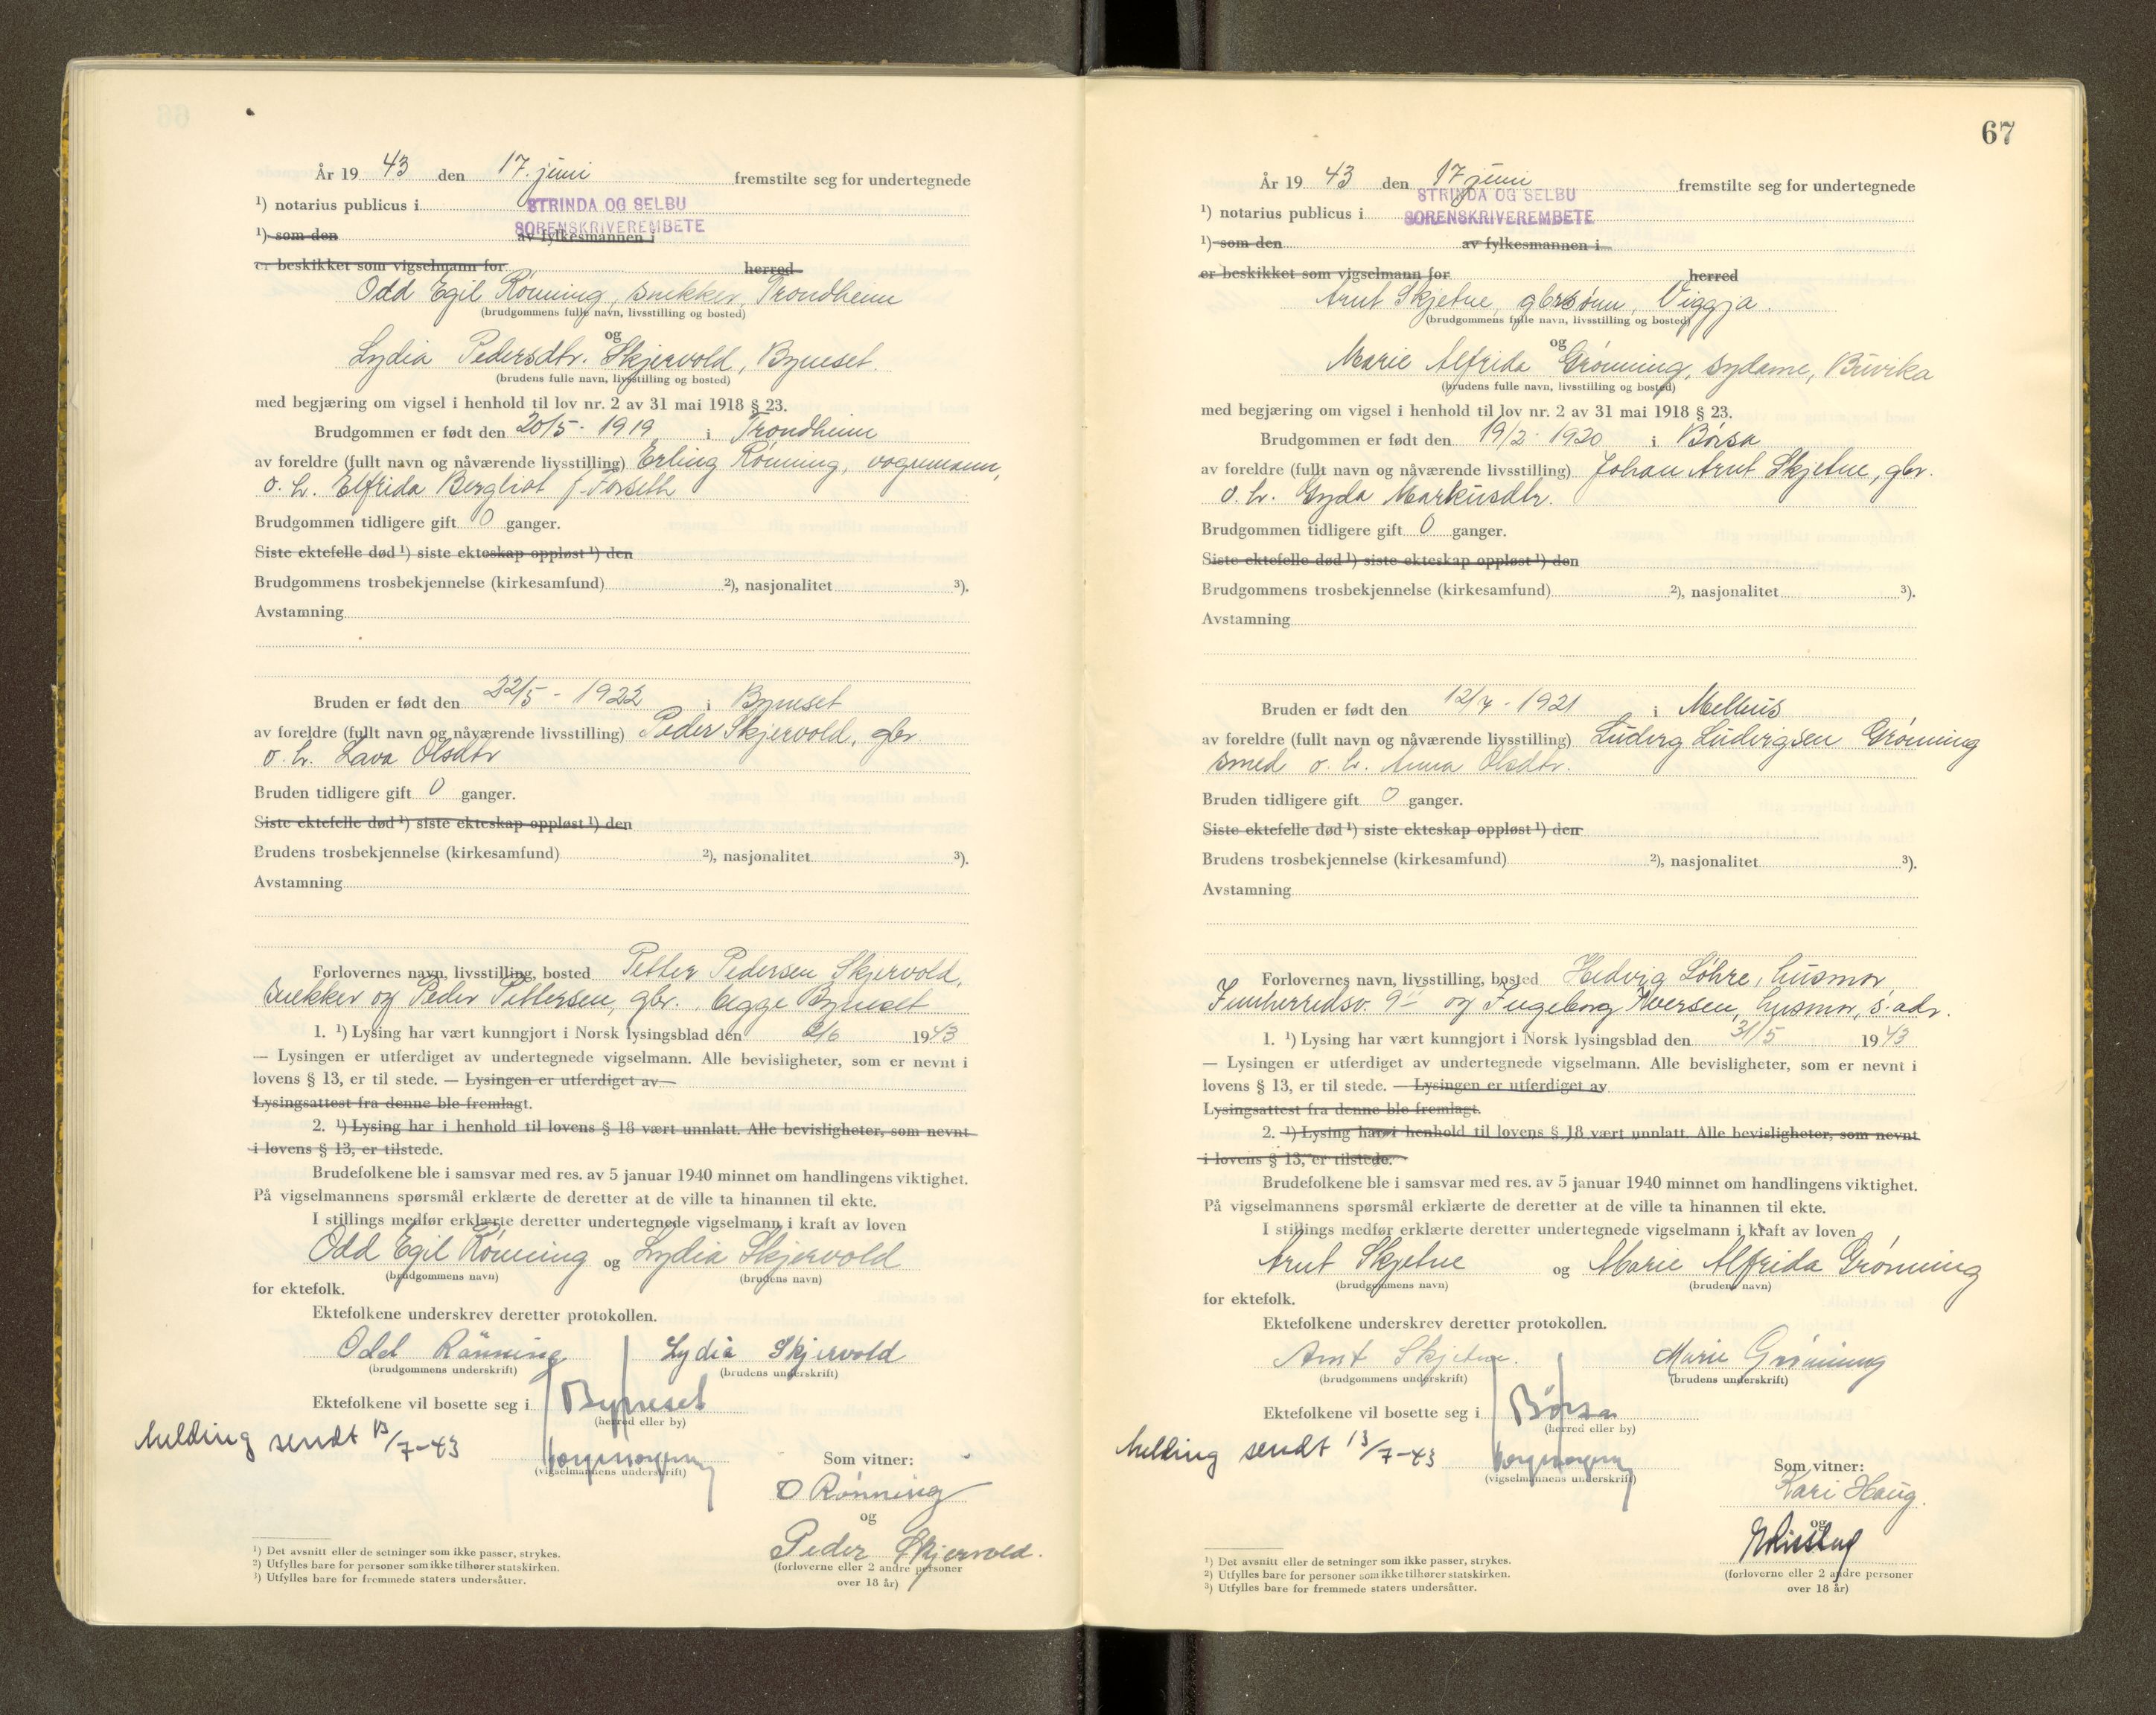 År 19 43 den 17. juni fremstilte seg for undertegnede
¹) notarius publicus i STRINDA OG SELBU
SORENSKRIVEREMBETE
¹) som den av fylkesmannen i
er beskikket som vigselmann for herred
Odd Egil Rönning, snekker, Trondheim
(brudgommens fulle navn, livsstilling og bosted)
og
Lydia Pedersdtr. Skjervold, Byneset.
(brudens fulle navn, livsstilling og bosted)
med begjæring om vigsel i henhold til lov nr. 2 av 31 mai 1918 § 23.
Brudgommen er født den 20/5 - 1919 i Trondheim
av foreldre (fullt navn og nåværende livsstilling) Erling Rönning, vognmann,
o. h. Elfrida Bergliot f. Forseth
Brudgommen tidligere gift 0 ganger.
Siste ektefelle død ¹) siste ekteskap oppløst ¹) den
Brudgommens trosbekjennelse (kirkesamfund) ²), nasjonalitet ³).
Avstamning
Bruden er født den 22/5 - 1922 i Byneset
av foreldre (fullt navn og nåværende livsstilling) Peder Skjervold, gbr.
o. h. Lava Olsdtr
Bruden tidligere gift 0 ganger.
Siste ektefelle død ¹) siste ekteskap oppløst ¹) den
Brudens trosbekjennelse (kirkesamfund) ²), nasjonalitet ³).
Avstamning
Forlovernes navn, livsstilling, bosted Petter Pedersen Skjervold,
snekker og Peder Pettersen, gbr. begge Byneset
1. ¹) Lysing har vært kunngjort i Norsk lysingsblad den 2/6 19 43
— Lysingen er utferdiget av undertegnede vigselmann. Alle bevisligheter, som er nevnt i
lovens § 13, er til stede. — Lysingen er utferdiget av
Lysingsattest fra denne ble fremlagt.
2. ¹) Lysing har i henhold til lovens § 18 vært unnlatt. Alle bevisligheter, som nevnt
i lovens § 13, er tilstede.
Brudefolkene ble i samsvar med res. av 5 januar 1940 minnet om handlingens viktighet.
På vigselmannens spørsmål erklærte de deretter at de ville ta hinannen til ekte.
I stillings medfør erklærte deretter undertegnede vigselmann i kraft av loven
Odd Egil Rönning og Lydia Skjervold
(brudgommens navn) (brudens navn)
for ektefolk.
Ektefolkene underskrev deretter protokollen.
Odd Rönning Lydia Skjervold
(brudgommens underskrift) (brudens underskrift)
Ektefolkene vil bosette seg i Byneset
(herred eller by)
Melding sendt 13/7-43
(vigselmannens underskrift)
Som vitner:
O Rönning
og
Peder Skjervold.
(forloverne eller 2 andre personer
over 18 år)
¹) Det avsnitt eller de setninger som ikke passer, strykes.
²) Utfylles bare for personer som ikke tilhører statskirken.
³) Utfylles bare for fremmede staters undersåtter.
67
År 19 43 den 17 juni fremstilte seg for undertegnede
¹) notarius publicus i STRINDA OG SELBU
SORENSKRIVEREMBETE
¹) som den av fylkesmannen i
er beskikket som vigselmann for herred
Arnt Skjetne, gbrsønn, Viggja.
(brudgommens fulle navn, livsstilling og bosted)
og
Marie Alfrida Grönning, sydame, Buvika
(brudens fulle navn, livsstilling og bosted)
med begjæring om vigsel i henhold til lov nr. 2 av 31 mai 1918 § 23.
Brudgommen er født den 19/2 - 1920 i Börsa
av foreldre (fullt navn og nåværende livsstilling) Johan Arnt Skjetne, gbr.
o. h. Gyda Markusdtr.
Brudgommen tidligere gift 0 ganger.
Siste ektefelle død ¹) siste ekteskap oppløst ¹) den
Brudgommens trosbekjennelse (kirkesamfund) ²), nasjonalitet ³).
Avstamning
Bruden er født den 12/4 - 1921 i Melhus
av foreldre (fullt navn og nåværende livsstilling) Ludvig Ludvigsen Grönning
smed o. h. Anna Olsdtr.
Bruden tidligere gift 0 ganger.
Siste ektefelle død ¹) siste ekteskap oppløst ¹) den
Brudens trosbekjennelse (kirkesamfund) ²), nasjonalitet ³).
Avstamning
Forlovernes navn, livsstilling, bosted Hedvig Löhre, husmor
Innherredsv. og Ingeborg Iversen, husmor, s. adr.
1. ¹) Lysing har vært kunngjort i Norsk lysingsblad den 31/5 19 43
— Lysingen er utferdiget av undertegnede vigselmann. Alle bevisligheter, som er nevnt i
lovens § 13, er til stede. — Lysingen er utferdiget av
Lysingsattest fra denne ble fremlagt.
2. ¹) Lysing har i henhold til lovens § 18 vært unnlatt. Alle bevisligheter, som nevnt
i lovens § 13, er tilstede.
Brudefolkene ble i samsvar med res. av 5 januar 1940 minnet om handlingens viktighet.
På vigselmannens spørsmål erklærte de deretter at de ville ta hinannen til ekte.
I stillings medfør erklærte deretter undertegnede vigselmann i kraft av loven
Arnt Skjetne og Marie Alfrida Grönning
(brudgommens navn) (brudens navn)
for ektefolk.
Ektefolkene underskrev deretter protokollen.
Arnt Skjetne. Marie Grönning
(brudgommens underskrift) (brudens underskrift)
Ektefolkene vil bosette seg i Börsa
(herred eller by)
Melding sendt 13/7-43
(vigselmannens underskrift)
Som vitner:
Kari Haug.
og
(forloverne eller 2 andre personer
over 18 år)
¹) Det avsnitt eller de setninger som ikke passer, strykes.
²) Utfylles bare for personer som ikke tilhører statskirken.
³) Utfylles bare for fremmede staters undersåtter.